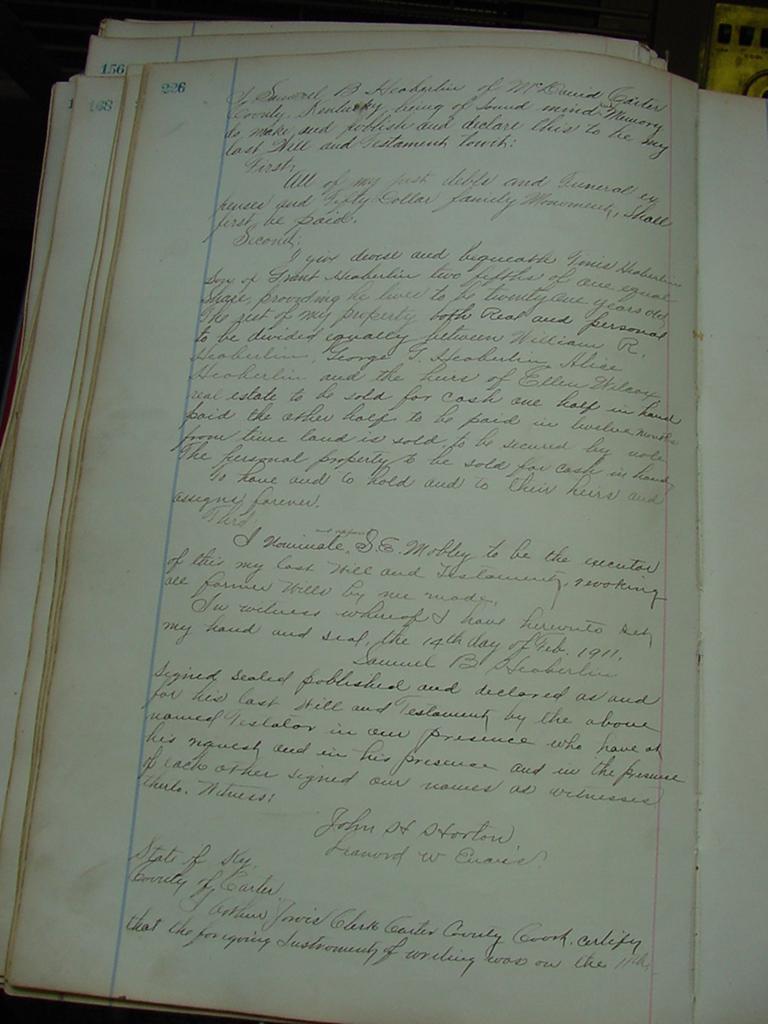 156
168
226
I, Samuel B Heaberlin of McDavid Carter
County, Kentucky, being of sound mind Memory
do make and publish and declare this to be my
last Will and Testament towit:
First,
All of my just debts and Funeral ex
penses and Fifty Dollar family Monument, shall
first be paid.
Second;
I give devise and bequeath Heaberlin
Son of Grant Heaberlin two fifths of one equal
share, providing he lives to be twenty one years old
The rest of my property both Real and personal
to be divided equally between William R.
Heaberlin, George T. Heaberlin, Alice
Heaberlin and the heirs of Ellen Wilcox,
real estate to be sold for cash one half in hand
paid the other half to be paid in twelve months
from time land is sold, to be secured by note
The personal property to be sold for cash in hand,
To have and to hold and to their heirs and
assigns forever.
Third,
and appoint
I nominate, S. E. Mobley to be the executor
of this my last Will and Testament, revoking
all former Wills by me made,
In witness whereof I have hereunto set
my hand and seal, the 14th day of Feb. 1911,
Samuel B Heaberlin
Signed sealed published and declared as and
for his last Will and Testament by the above
named Testator in our presence who have at
his request, and in his presence and in the presence
of each other signed our names as witnesses
thereto. Witness;
John H Horton
W Evans
State of Ky.
County of Carter
Clerk Carter County Court. certify
that the foregoing Instrument of writing was on the 11th